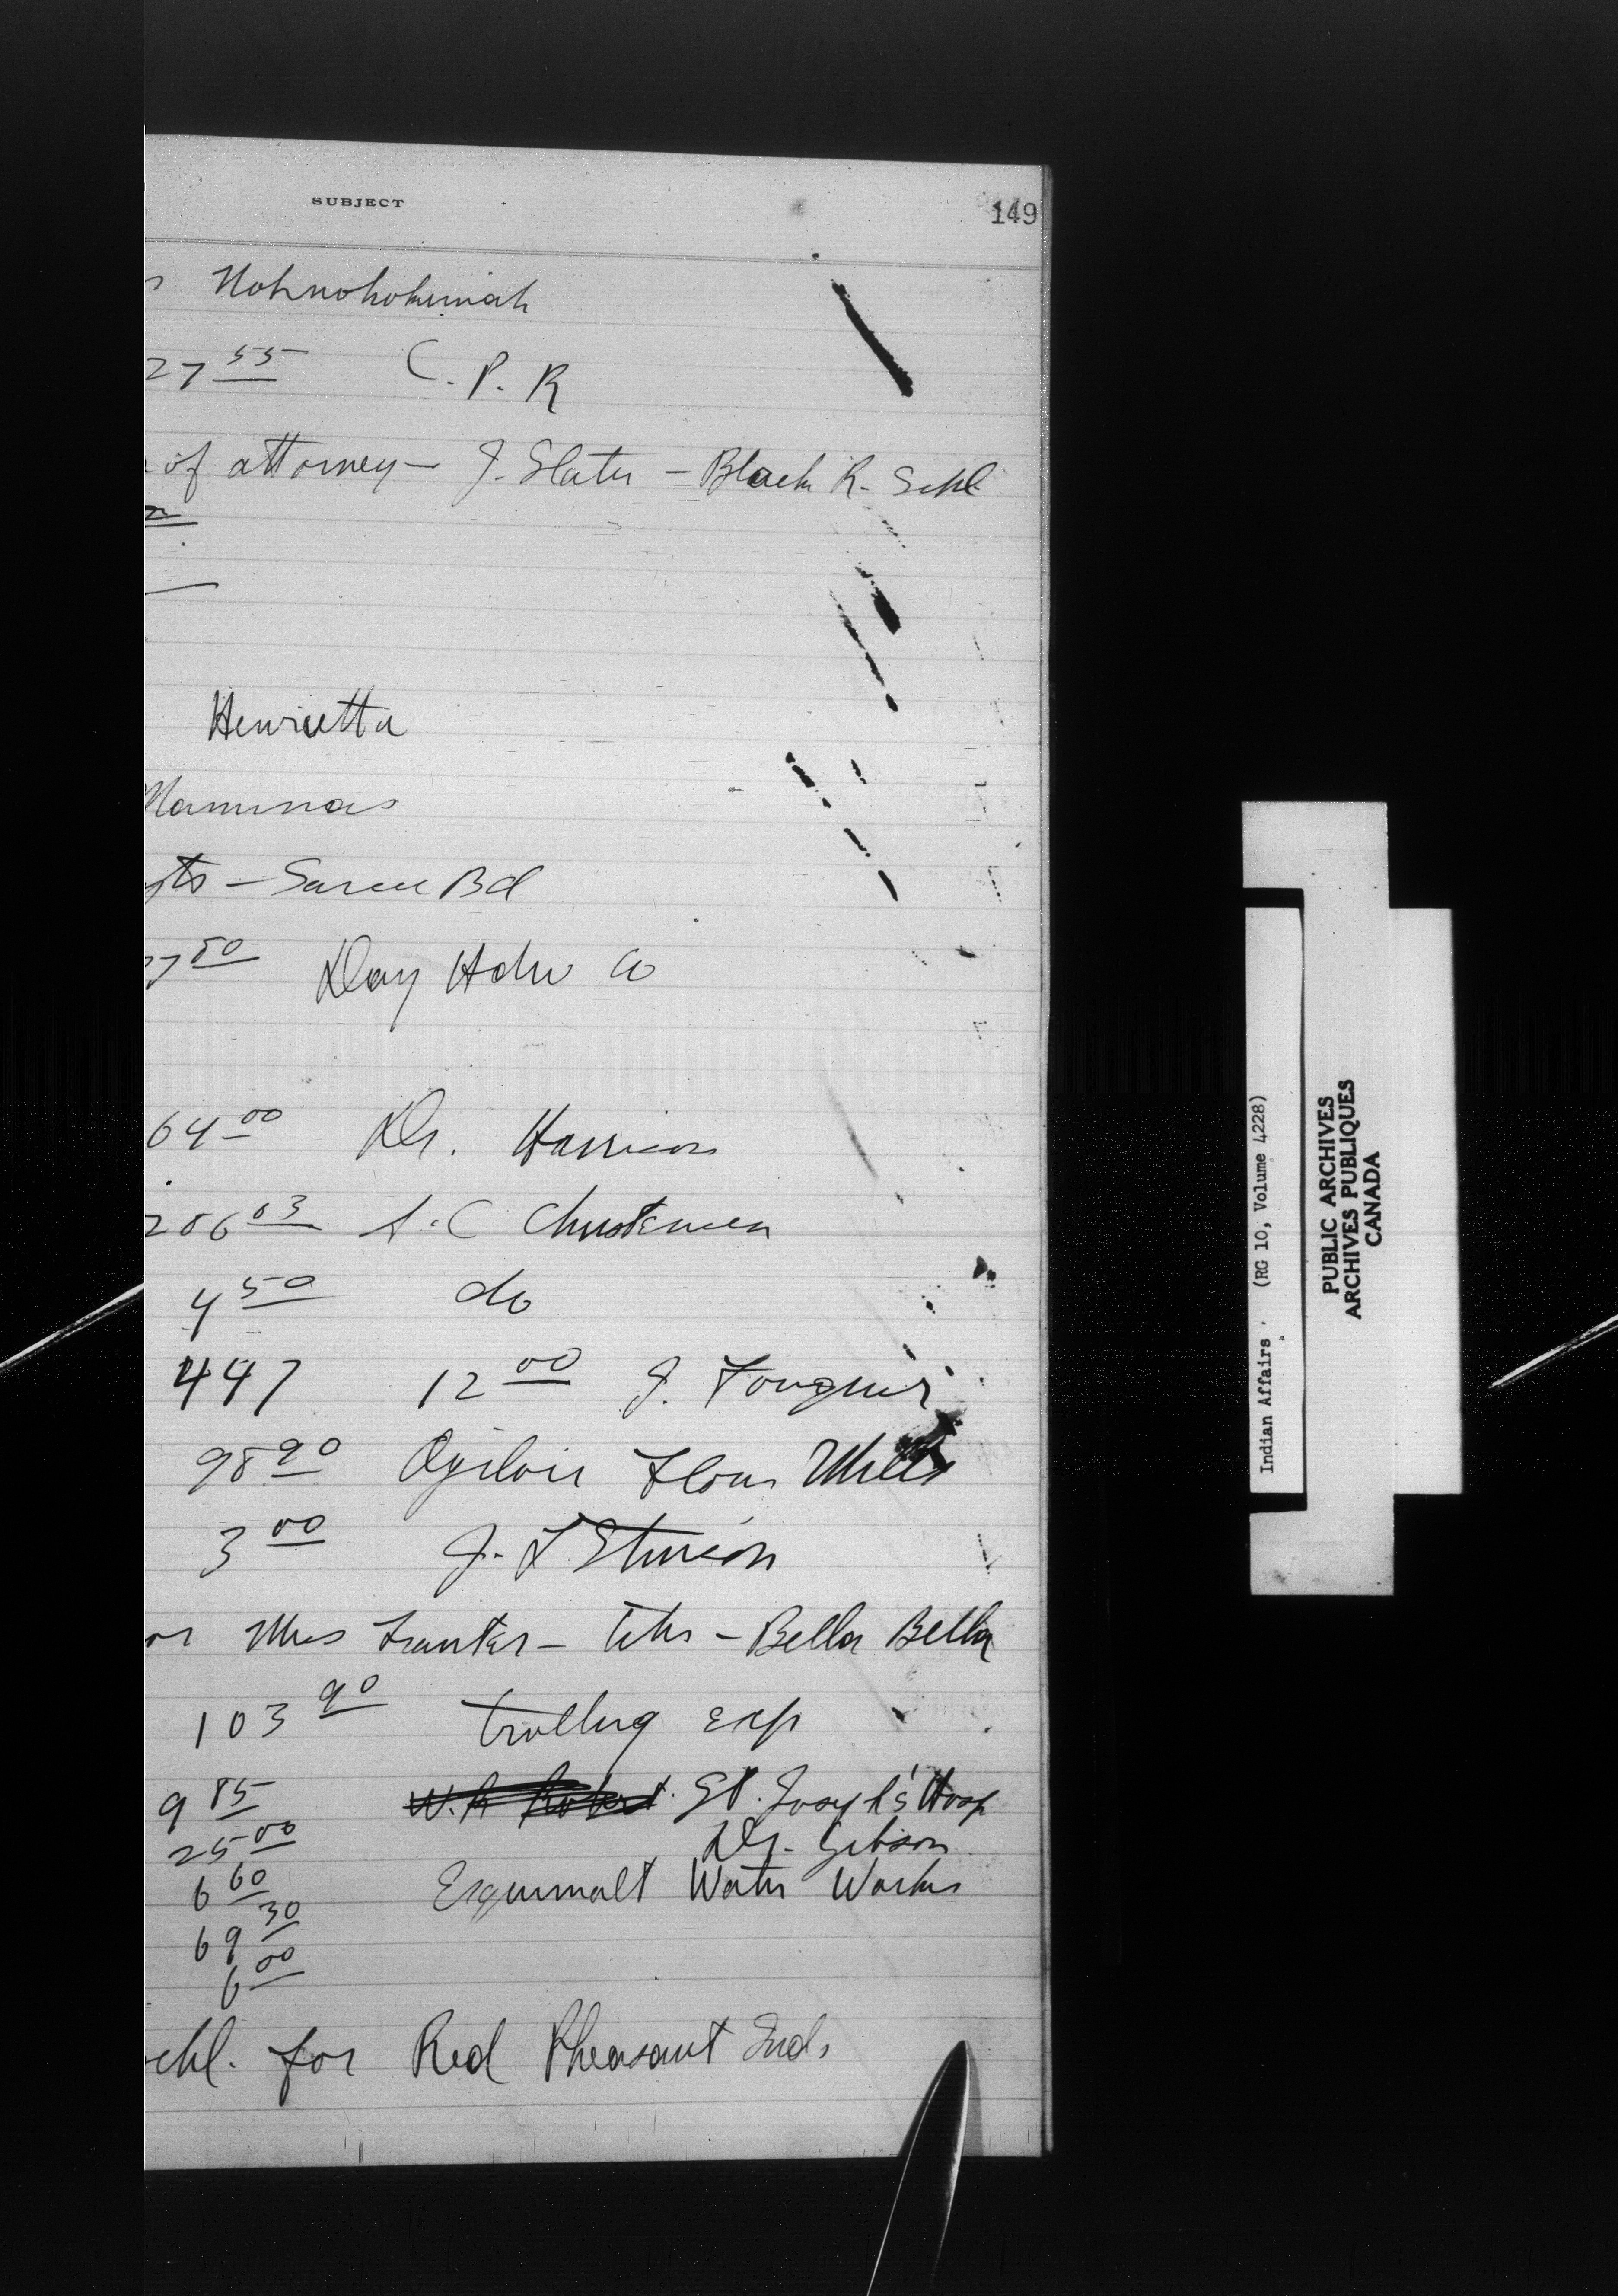 SUBJECT
149
Nohnohokumiah
27 55 C. P. R
of attorney — J. Slater — Black R. Schl.
Henrietta
ts — Sarcee Bd
7 50 Day Hdw Co
64 00 Dr. Harrison
206 03 A. C Christensen
4 50 do
447 12 00 J.
98 90 Ogilvie Flour Mills
3 00 J. F. Stinson
or Miss Tranter — tchr — Bella Bella
103 90 trollng exp
9 85 St. Joseph's Hosp
25 00 Dr. Gibson
6 60 Esquimalt Water Works
69 30
6 00
chl. for Red Pheasant Inds
Indian Affairs. (RG 10, Volume 4228)
PUBLIC ARCHIVES
ARCHIVES PUBLIQUES
CANADA